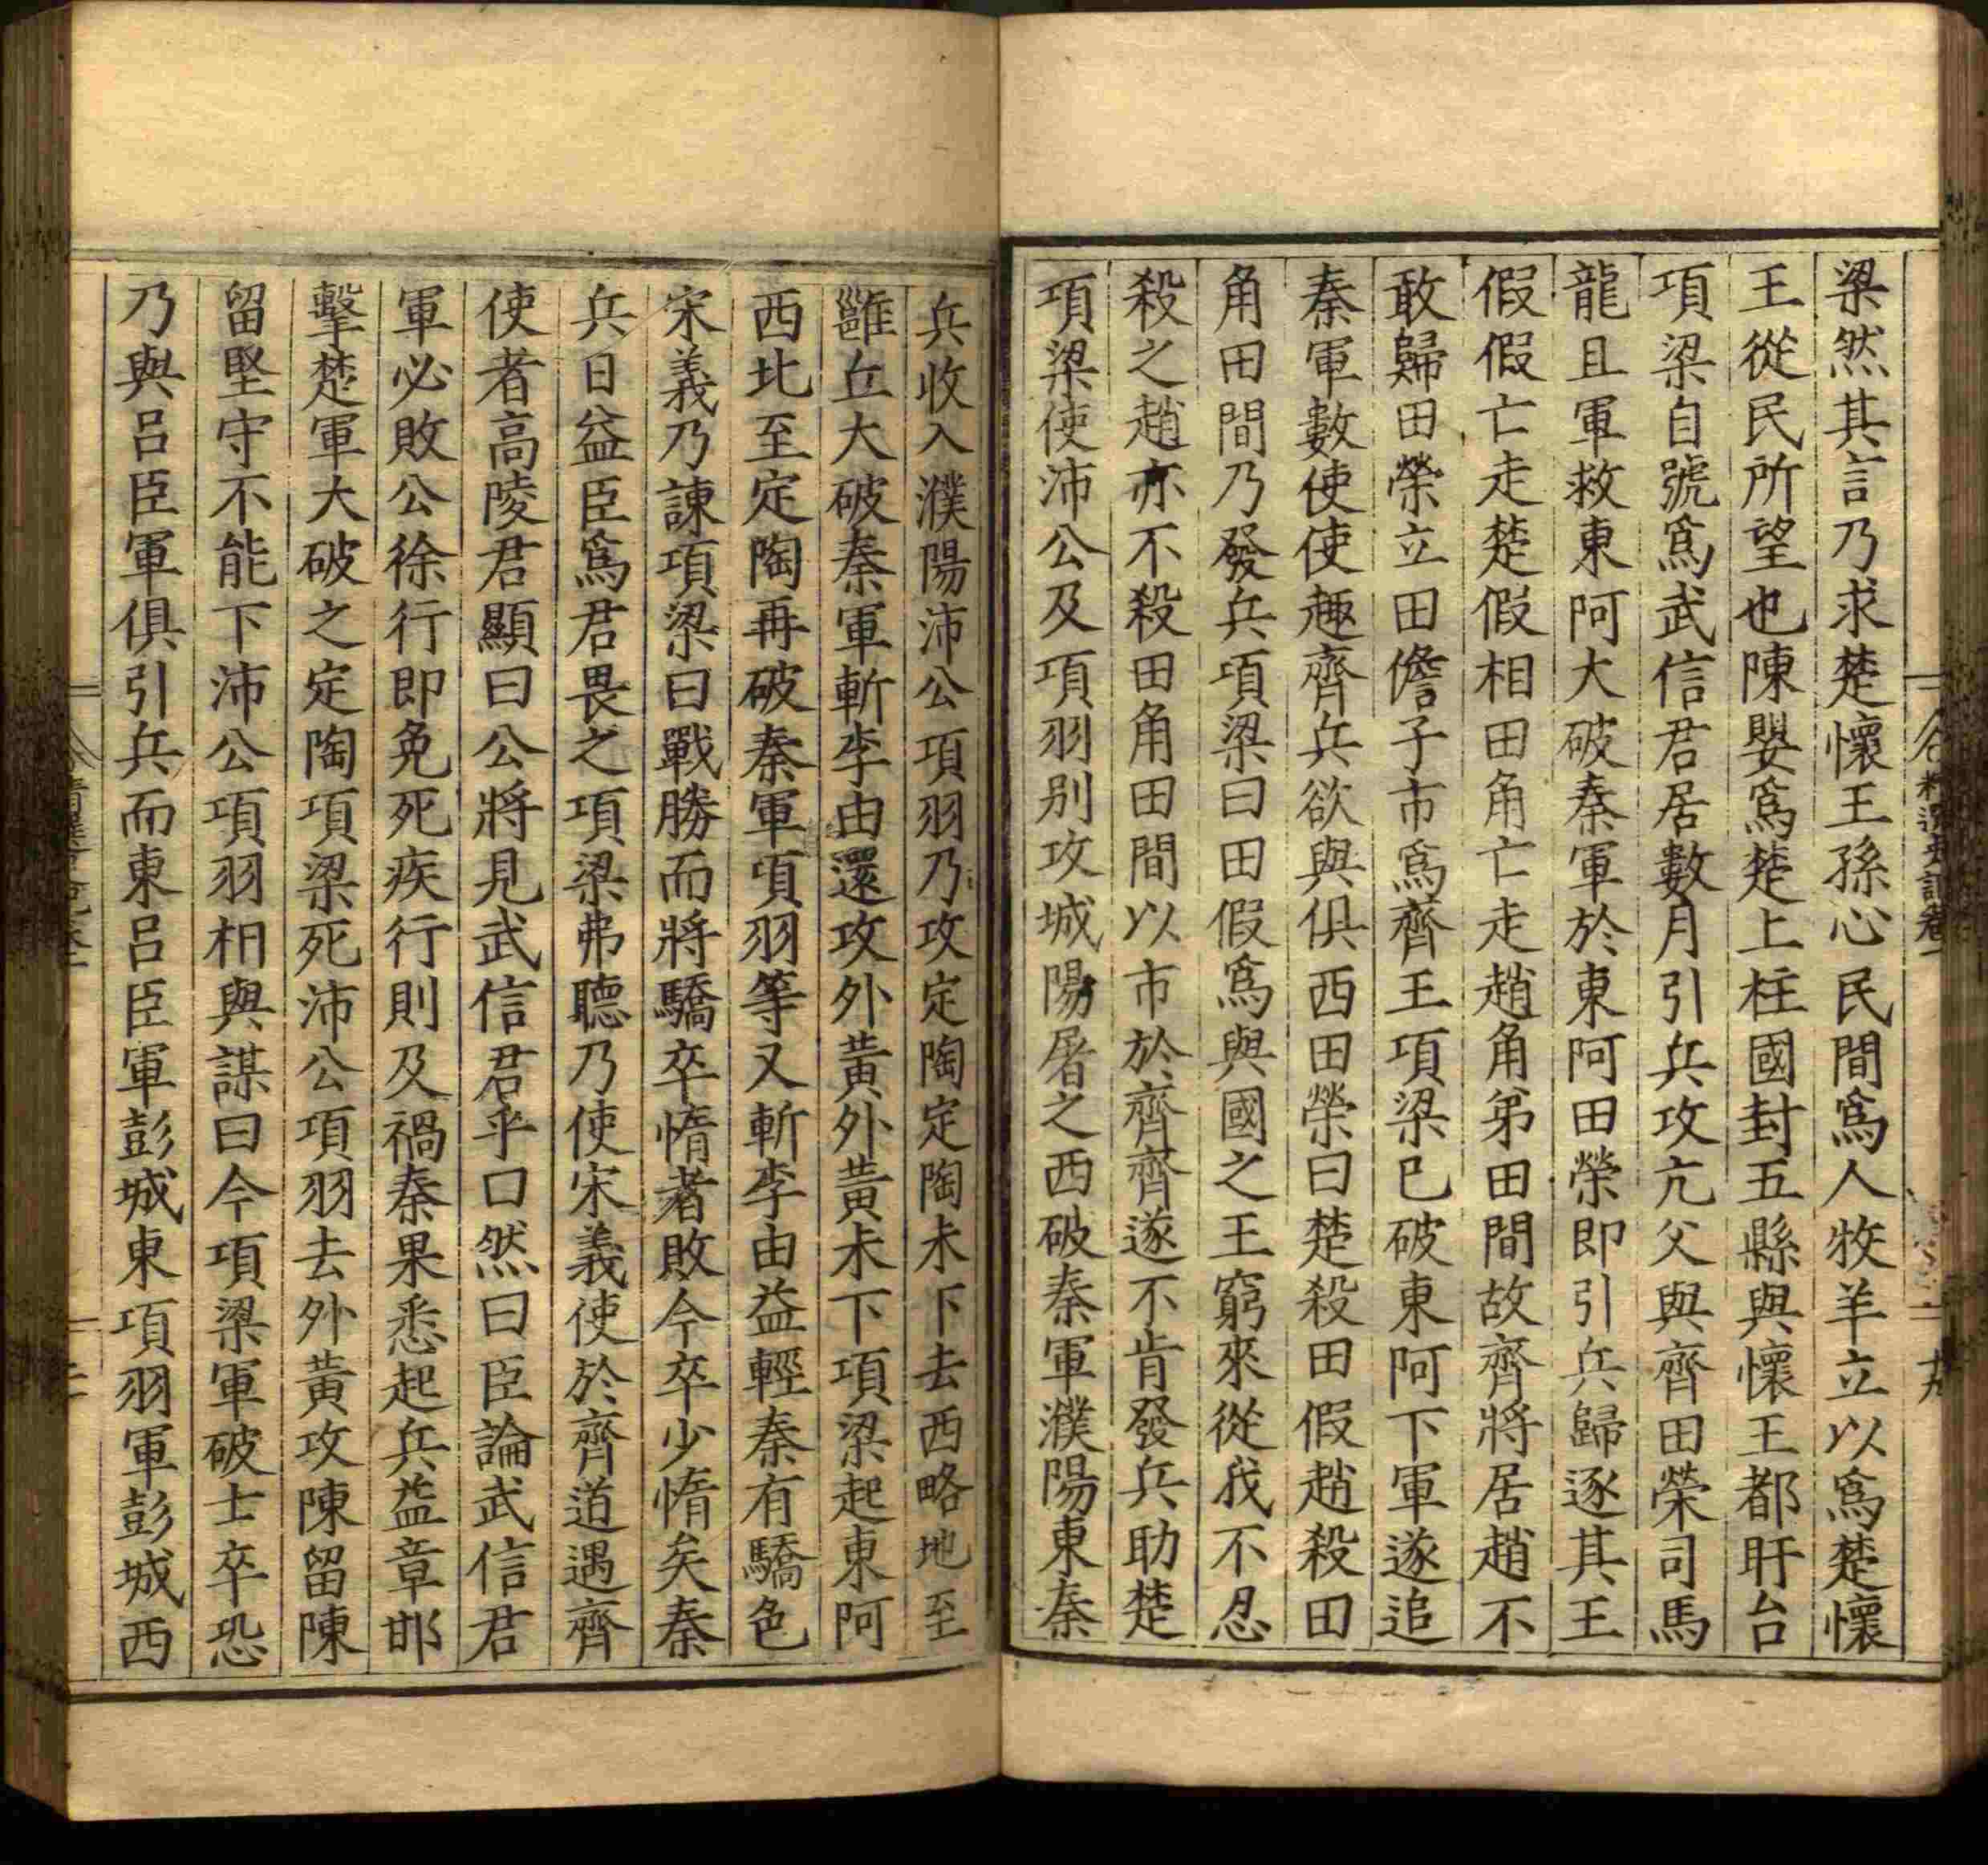 梁然其言乃求楚懷王孫心民間爲人牧羊立以爲楚懷
王從民所望也陳嬰爲楚上柱國封五縣與懷王都盱台
項梁自號爲武信君居數月引兵攻亢父與齊田榮司馬
龍且軍救東阿大破秦軍於東阿田榮即引兵歸逐其王
假假亡走楚假相田角亡走趙角弟田間故齊將居趙不
敢歸田榮立田儋子市爲齊王項梁已破東阿下軍遂追
秦軍數使使趣齊兵欲與俱西田榮曰楚殺田假趙殺田
角田間乃發兵項梁曰田假爲與國之王窮來從我不忍
殺之趙亦不殺田角田間以市於齊齊遂不肯發兵助楚
項梁使沛公及項羽別攻城陽屠之西破秦軍濮陽東秦
精選史記卷一
十九
兵收入濮陽沛公項羽乃攻定陶定陶未下去西略地至
雝丘大破秦軍斬李由還攻外黃外黃未下項梁起東阿
西北至定陶再破秦軍項羽等又斬李由益輕秦有驕色
宋義乃諫項梁曰戰勝而將驕卒惰者敗今卒少惰矣秦
兵日益臣爲君畏之項梁弗聽乃使宋義使於齊道遇齊
使者高陵君顯曰公將見武信君乎曰然曰臣論武信君
軍必敗公徐行即免死疾行則及禍秦果悉起兵益章邯
擊楚軍大破之定陶項梁死沛公項羽去外黃攻陳留陳
留堅守不能下沛公項羽相與謀曰今項梁軍破士卒恐
乃與呂臣軍俱引兵而東呂臣軍彭城東項羽軍彭城西